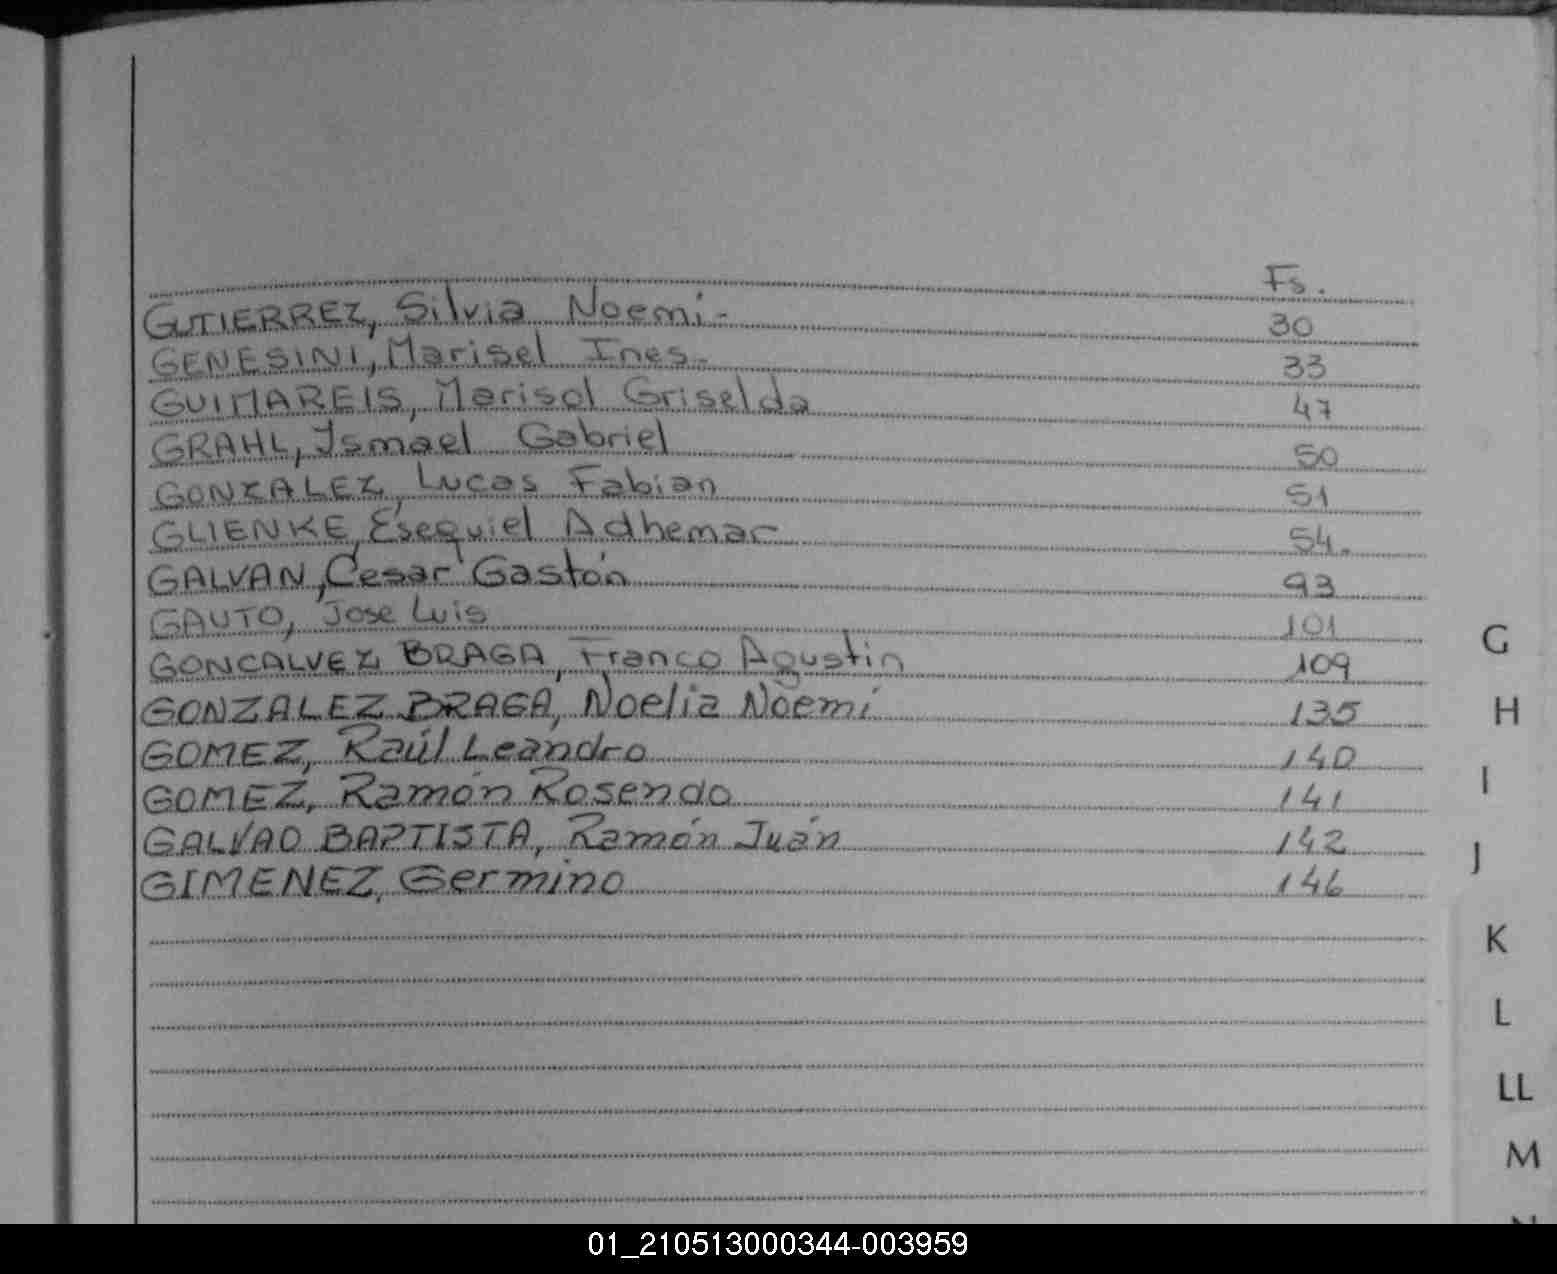 Fs.
GUTIERREZ, Silvia Noemi.- 30
GENESINI, Marisel Ines.- 33
GUIMAREIS, Marisol Griselda 47
GRAHL, Ismael Gabriel 50
GONZALEZ, Lucas Fabian 51
GLIENKE, Esequiel Adhemar 54.
GALVAN, Cesar Gastón 93
GAUTO, Jose Luis 101
GONCALVEZ BRAGA, Franco Agustin 109
GONZALEZ BRAGA, Noelia Noemí 135
GOMEZ, Raúl Leandro 140
GOMEZ, Ramón Rosendo 141
GALVAO BAPTISTA, Ramón Juán 142
GIMENEZ, Germino 146
G
H
I
J
K
L
LL
M
01_210513000344-003959